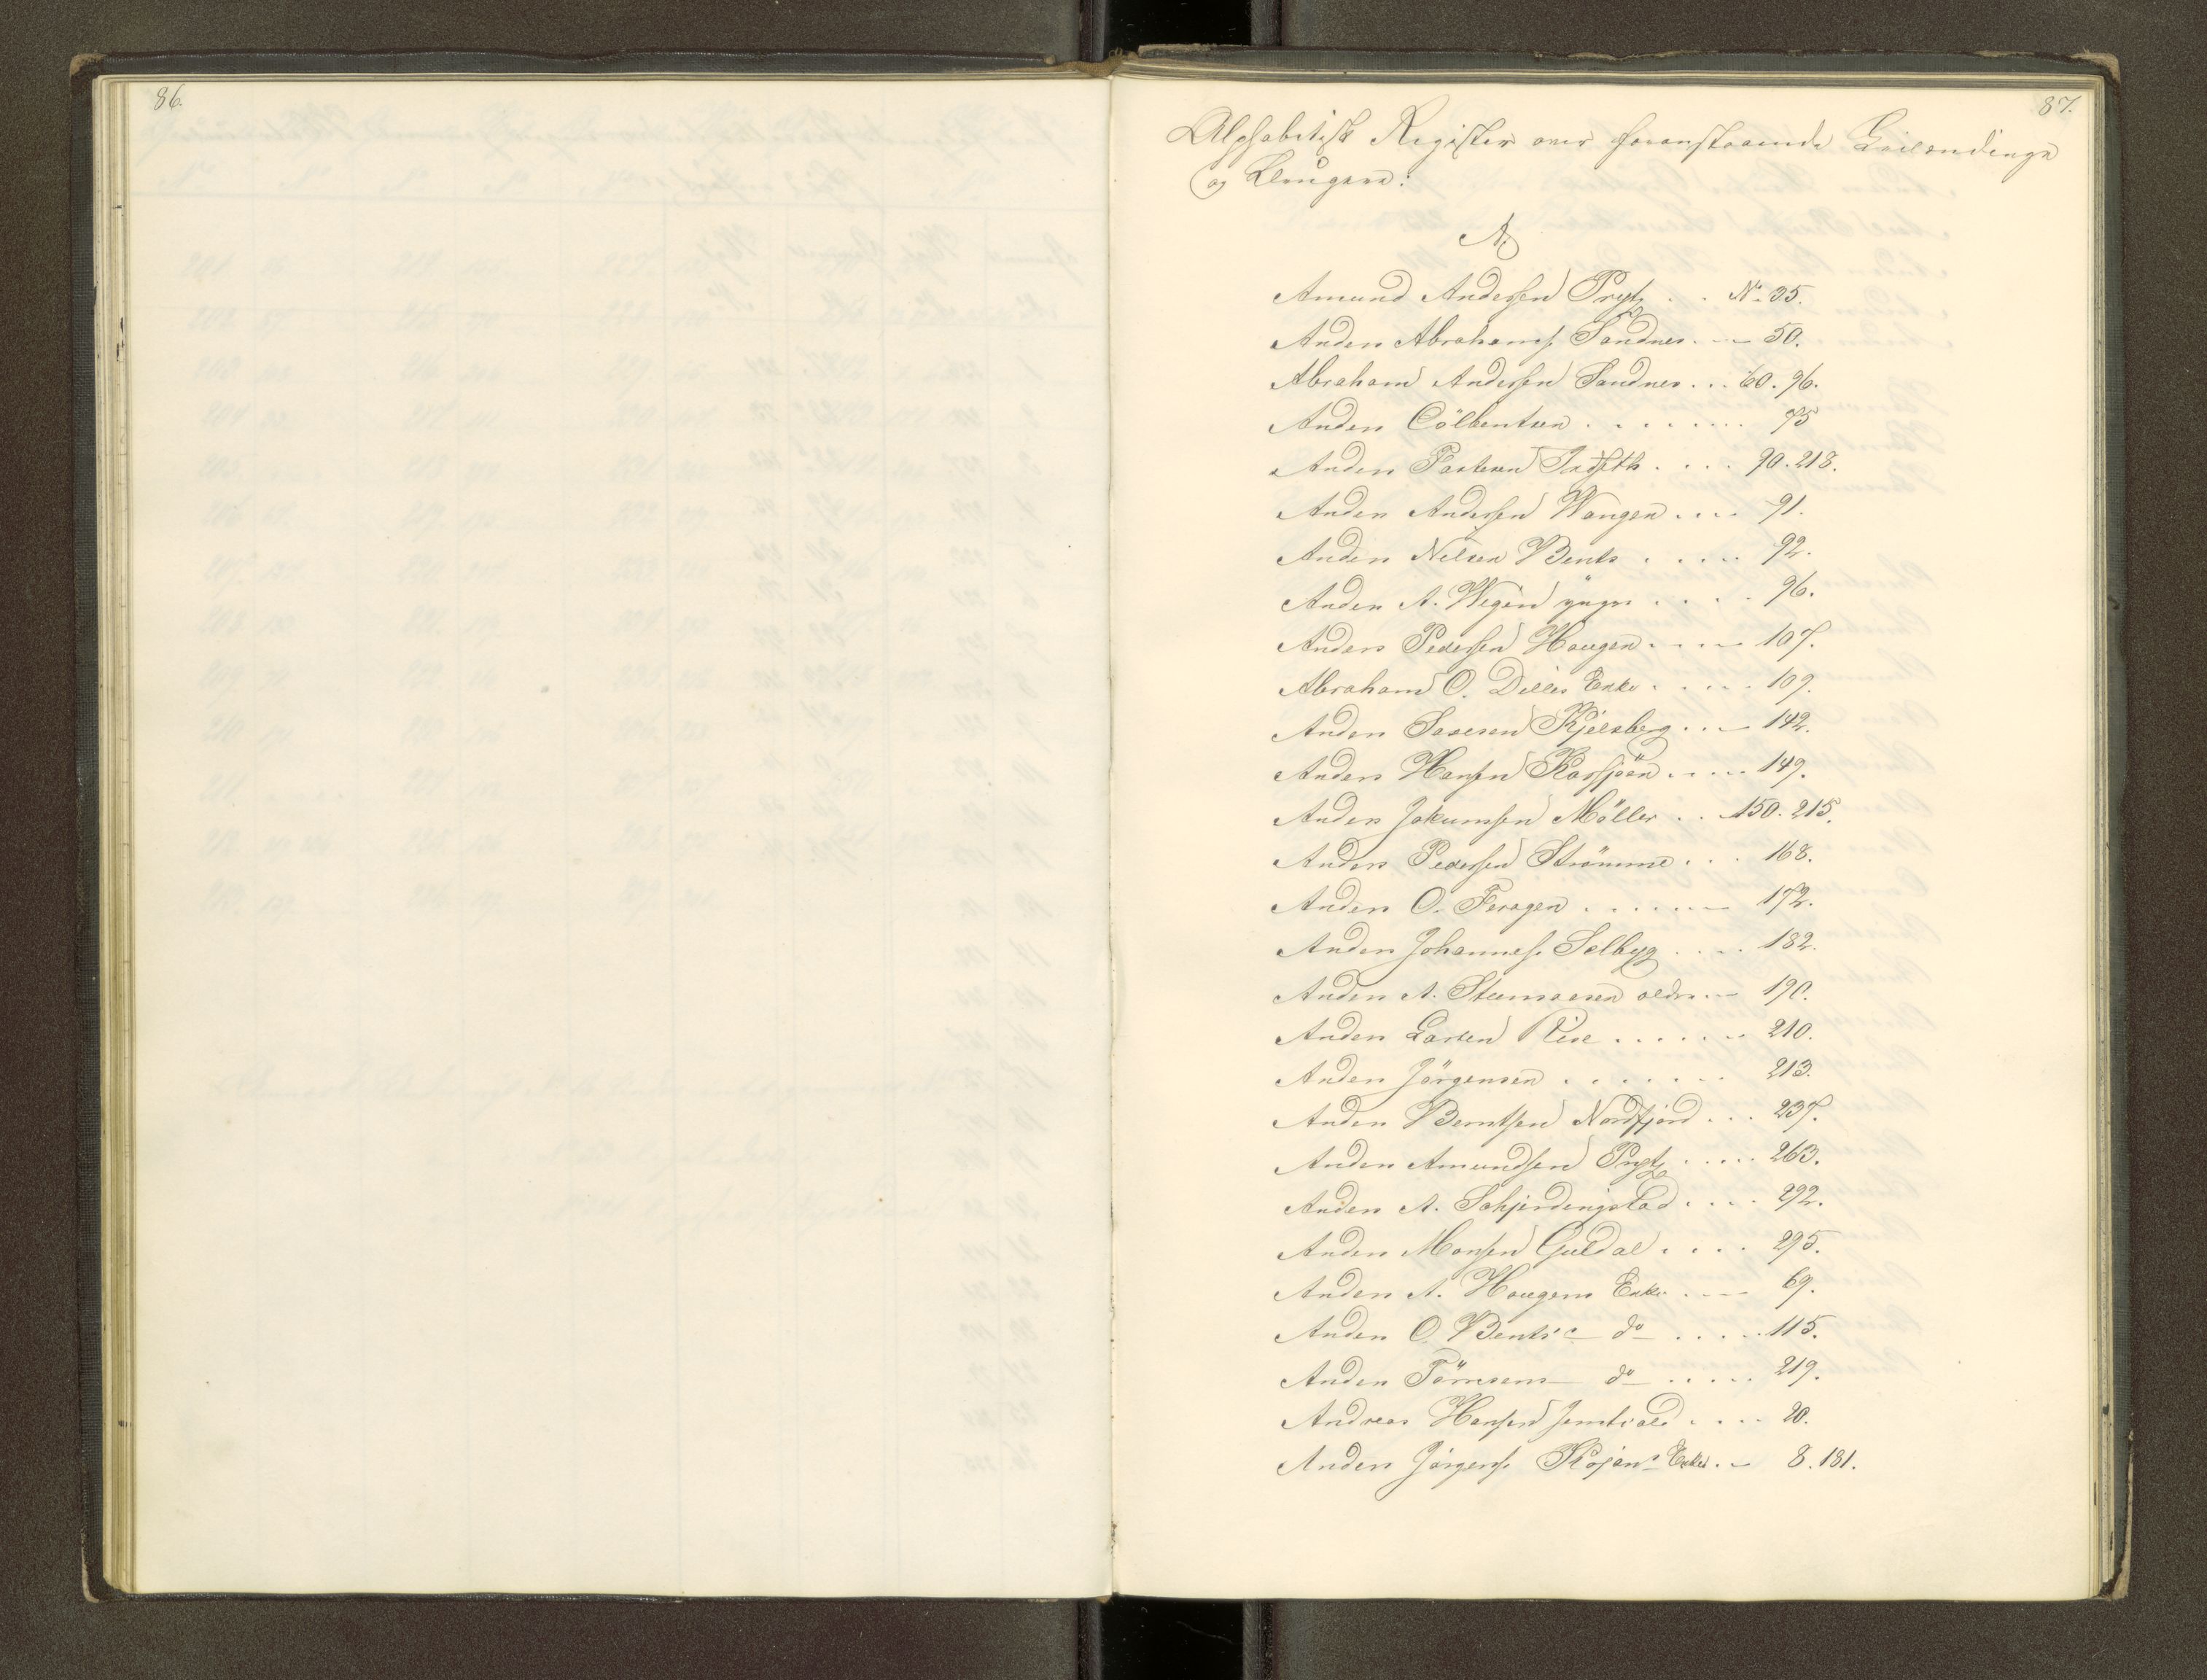 86.
87.
Alphabetisk Register over foranstaaende Leilændinge
og Brugere:
A.
Amund Anderssen Prytz . . No. 35.
Anders Abrahams. Sandnes . — 50.
Abraham Anderssen Sandnes . . . 60. 96.
Anders Cölbentsen . . . . . . . . 75
Anders Paulsen Indseth . . . . 90. 218.
Anders Anderssen Wangen . . . . 91.
Anders Nilsen Bents . . . . . 92.
Anders A. Wigen yngre . . . . . 96.
Anders Pederssen Haugen . . . . 107.
Abraham O. Dilles Enke . . . . . 109.
Anders Saxesen Kjelsberg . . . 142.
Anders Hanssen Korssjöen . . . . . 149.
Anders Jokumssen Möller . . . 150. 215.
Anders Pederssen Strömme . . . 168.
Anders O. Feragen . . . . . . . 172.
Anders Johanness. Selbyg . . . . 182.
Anders A. Steensaasen ældre . — 190.
Anders Larsen Rise . . . . . . . 210.
Anders Jörgensen . . . . . . . 213.
Anders Berntsen Nordfjord . . . 237.
Anders Amundsen Prytz . . . . . 263.
Anders A. Schjerdingstad . . . . 292.
Anders Monssen Guldal . . . . 295.
Anders A. Haugens Enke . . — 69.
Anders O. Bents's do . . . . . 115.
Anders Tömesens do . . . . . 219.
Andreas Hanssen Jemtvold . . . . 20.
Anders Jörgens. Röjens Enke . — 8. 181.